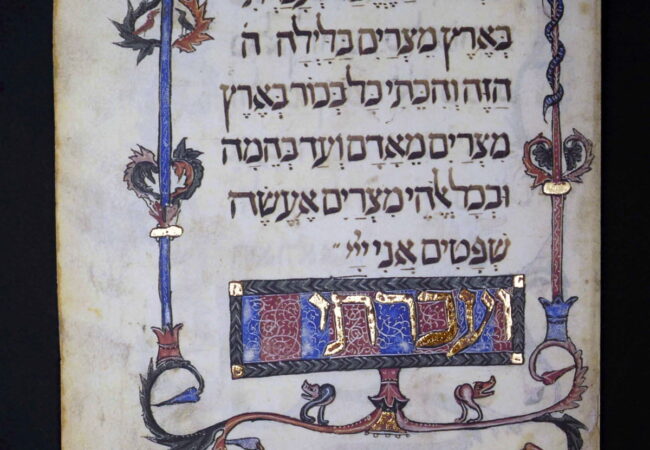 בְּאֶרֶץ מִצְרַיִם בַּלַּיְלָה ה
הַזֶּה וְהִכֵּתִי כָל בְּכוֹר בְּאֶרֶץ
מִצְרַיִם מֵאָדָם וְעַד בְּהֵמָה
וּבְכָל אֱלֹהֵי מִצְרַיִם אֶעֱשֶׂה
שְׁפָטִים אֲנִי ייי
וְעָבַרְתִּי